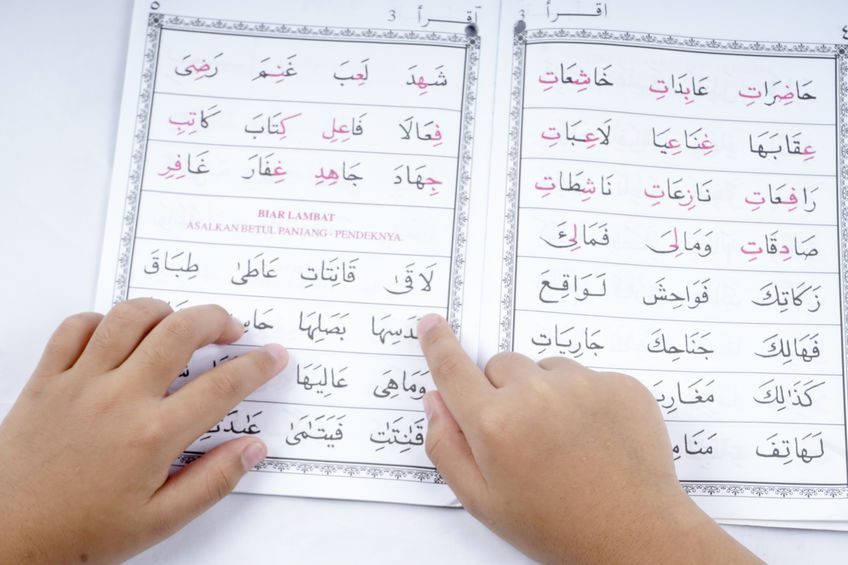 اقرأ 3
٤
حَاضِرَاتِ عَابِدَاتِ خَاشِعَاتِ
عِقَابَهَا غِنَاعِيَا لَاعِبَاتِ
رَافِعَاتِ نَازِعَاتِ نَاشِطَاتِ
صَادِقَاتِ وَمَالِىَ فَمَالِئَ
زَكَاتِكَ فَوَاحِشَ لَوَاقِعَ
فَهَالِكَ جَنَاحِكَ جَارِيَاتِ
كَذَالِكَ
لَهَاتِفَ
اقرأ 3
٥
شَهِدَ لَعِبَ غَنِمَ رَضِىَ
فِعَالَا فَاعِلِ كِتَابَ كَاتِبِ
جِهَادَ جَاهِدِ غِفَارَ غَافِرِ
BIAR LAMBAT
ASALKAN BETUL PANJANG - PENDEKNYA.
لَاقَىٰ قَانِتَاتِ عَاطَىٰ طِبَاقَ
بَصَلِهَا
وَمَاهِىَ عَالِيَهَا
قَٰنِتَٰتِ فَيَتَٰمَىٰ